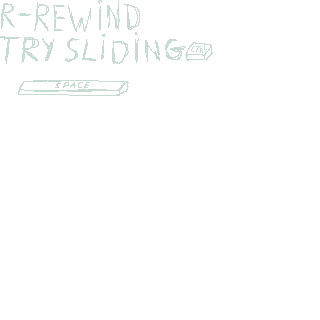 R-REWIND
TRY SLIDING CTRL
SPACE